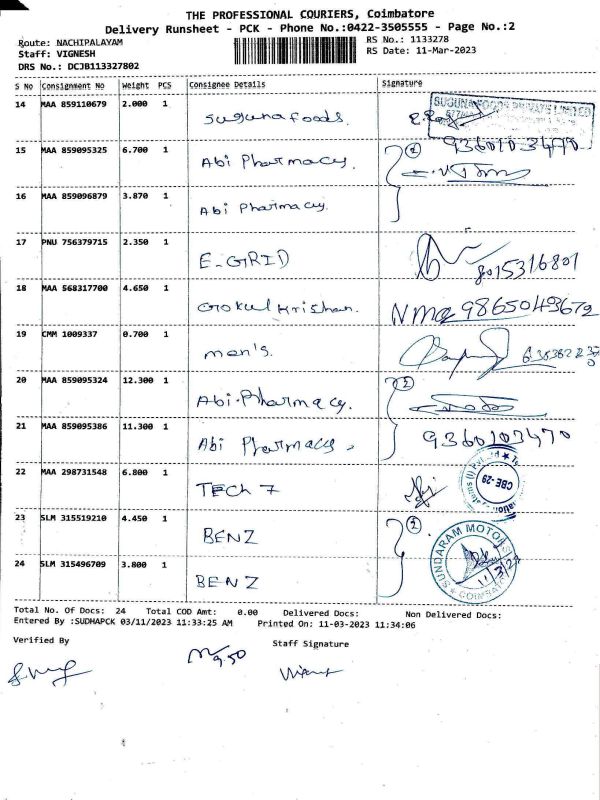 THE PROFESSIONAL COURIERS, Coimbatore
Delivery Runsheet - PCK - Phone No.:0422-3505555 - Page No.:2
Route: NACHIPALAYAM
RS No.: 1133278
Staff: VIGNESH
RS Date: 11-Mar-2023
DRS No.: DCJB113327802
S No Consignment No Weight PCS Consignee Details Signature
14 MAA 859110679 2.000 1 Sugunafoods.
SUGUNA FOODS PRIVATE LIMITED
15 MAA 859095325 6.700 1 Abi Pharmacy. 2 9360103470
16 MAA 859096879 3.870 1 Abi Pharmacy.
17 PNU 756379715 2.350 1 E-GRID 8015316801
18 MAA 568317700 4.650 1 Gokul Krishan. 9865049672
19 CMM 1009337 0.700 1 men's.
20 MAA 859095324 12.300 1 Abi.Pharmacy. 2
21 MAA 859095386 11.300 1 Abi Pharmacy. 9360103470
22 MAA 298731548 6.800 1 TECH 7
CBE-29
23 SLM 315519210 4.450 1 BENZ 2
SUNDARAM MOTORS
24 SLM 315496709 3.800 1 BENZ
COIMBATORE
Total No. Of Docs: 24 Total COD Amt: 0.00 Delivered Docs: Non Delivered Docs:
Entered By :SUDHAPCK 03/11/2023 11:33:25 AM Printed On: 11-03-2023 11:34:06
Verified By
Staff Signature
9.50